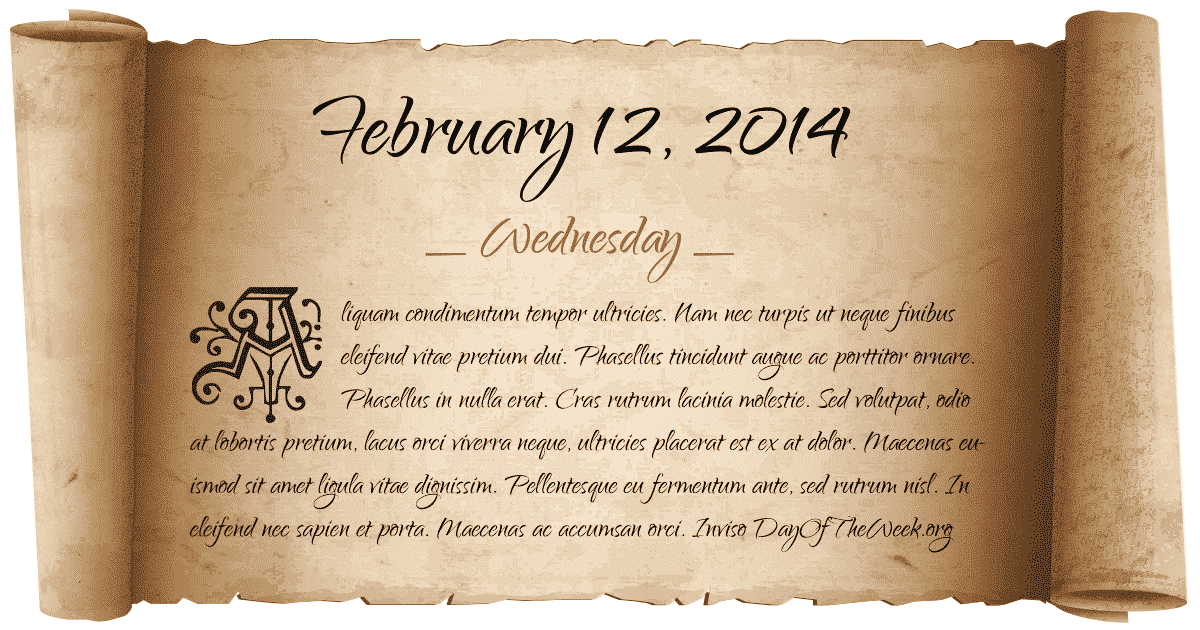 February 12, 2014
Wednesday
Aliquam condimentum tempor ultricies. Nam nec turpis ut neque finibus
eleifend vitae pretium dui. Phasellus tincidunt augue ac porttitor ornare.
Phasellus in nulla erat. Cras rutrum lacinia molestie. Sed volutpat, odio
at lobortis pretium, lacus orci viverra neque, ultricies placerat est ex at dolor. Maecenas eu-
ismod sit amet ligula vitae dignissim. Pellentesque eu fermentum ante, sed rutrum nisl. In
eleifend nec sapien et porta. Maecenas ac accumsan orci. Inviso DayOfTheWeek.org